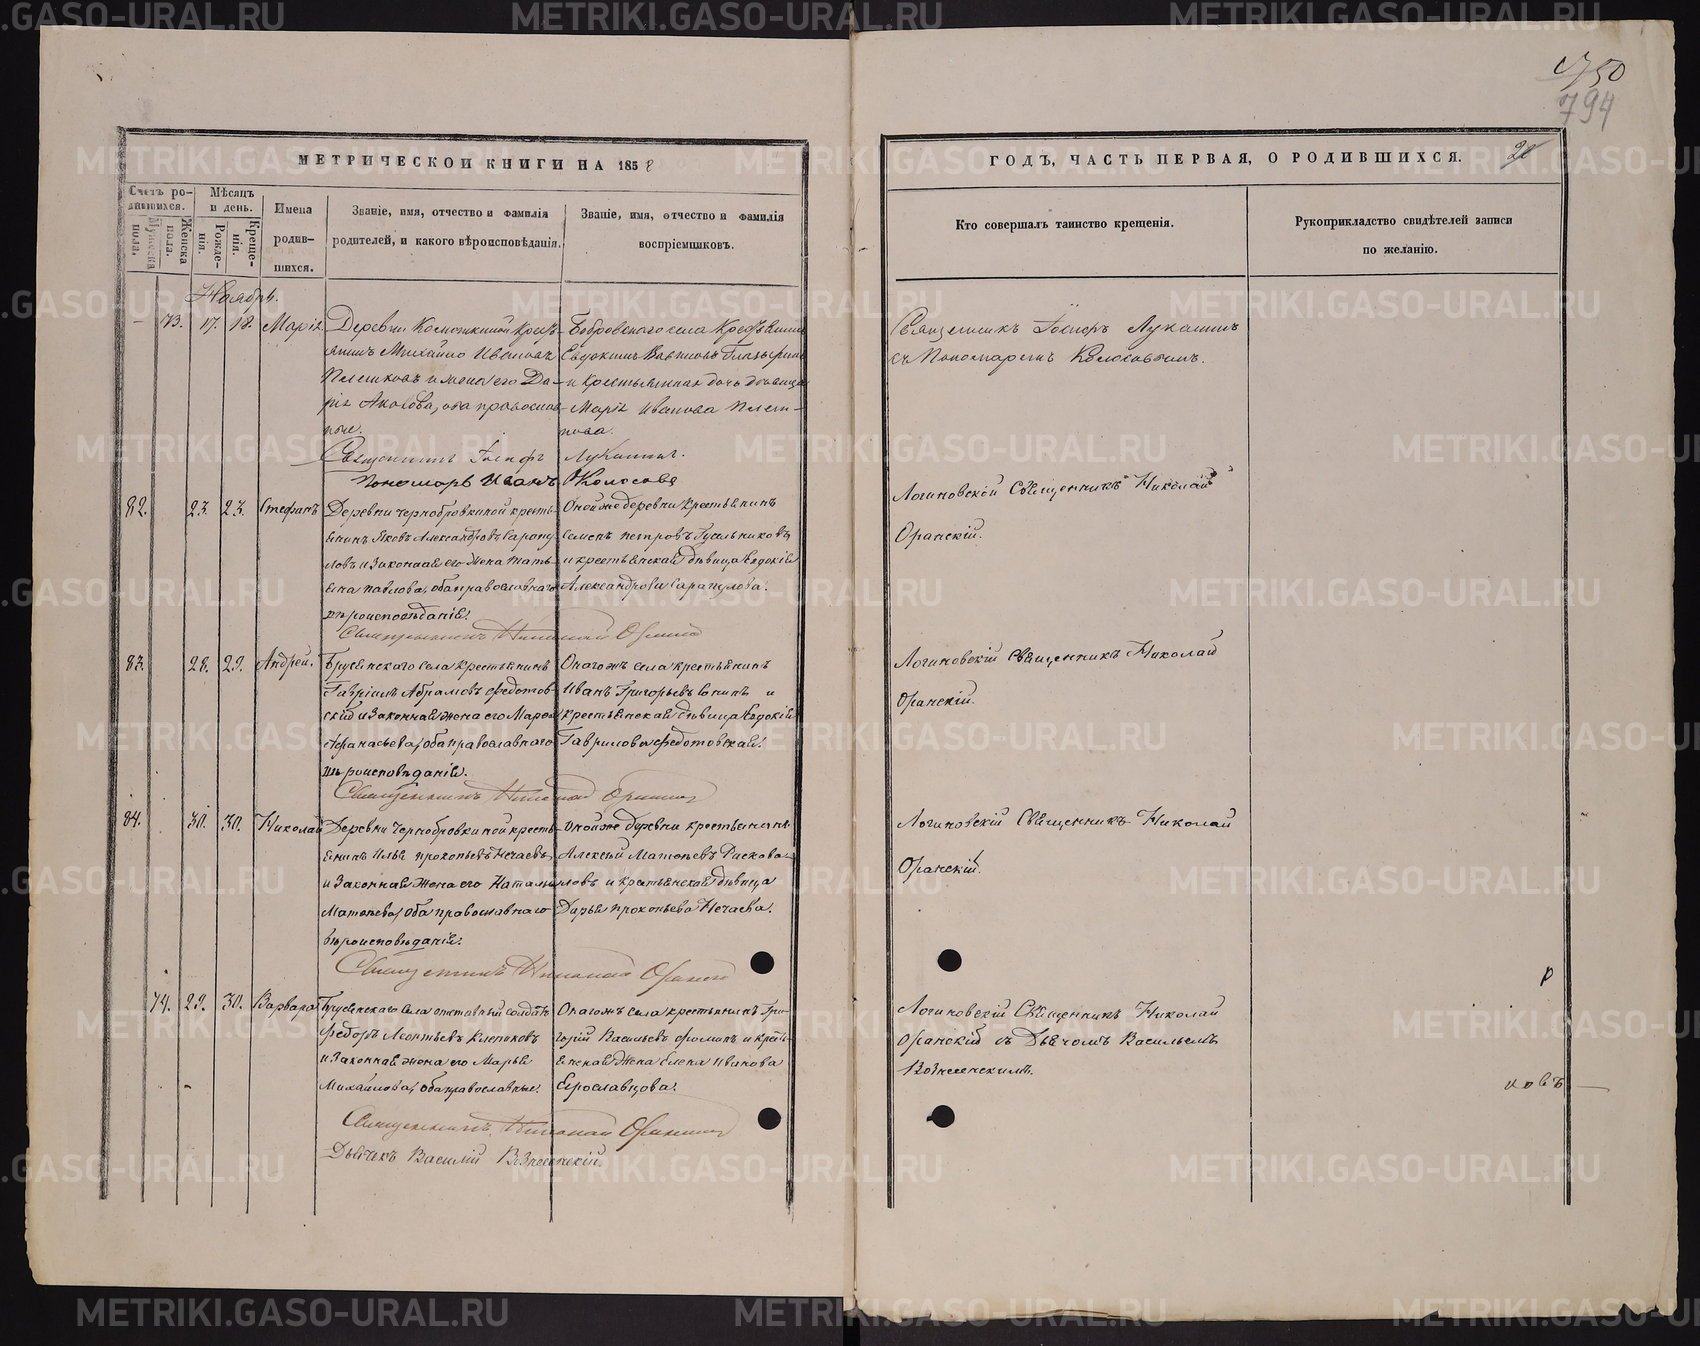 750
794
МЕТРИЧЕСКОЙ КНИГИ НА 1858
ГОДЪ, ЧАСТЬ ПЕРВАЯ, О РОДИВШИХСЯ.
Счетъ родившихся.
Мужеска пола.
Женска пола.
Мѣсяцъ и день.
Рожденія.
Крещенія.
Имена родившихся.
Званіе, имя, отчество и фамилія
родителей, и какого вѣроисповѣданія.
Званіе, имя, отчество и фамилія
воспріемниковъ.
Кто совершалъ таинство крещенія.
Рукоприкладство свидѣтелей записи
по желанію.
Ноябрь.
73. 17. 18. Марія
Деревни Крест-
янинъ Михайло Ивановъ
и жена его Да-
рія Акова, оба православ-
ные.
Бобровскаго села
Евдокимъ
и крестьянская дочь дѣвица
Марія Иванова
Священникъ Іосифъ Лукинъ
съ Пономаремъ Колосовымъ.
Священникъ Іосифъ Лукинъ.
Пономарь Иванъ Колосовъ
82. 23. 23. Стефанъ
Деревни Чернобровкиной кресть-
янинъ Яковъ Александровъ Сарапу-
ловъ и Законная его Жена Тать-
яна Павлова, оба православнаго
вѣроисповѣданія.
Оной же деревни Крестьянинъ
Семенъ Петровъ Гусельниковъ
и крестьянская дѣвица Евдокія
Александрова Сарапулова.
Логиновскій Священникъ Николай
Оранскій.
Священникъ Николай Оранскій
83. 28. 29. Андрей.
Брусянскаго села крестьянинъ
Гавріилъ Абрамовъ Федотов-
скій и Законная жена его Марѳа
Афанасьева, оба православнаго
вѣроисповѣданія.
Онагожъ села крестьянинъ
Иванъ Григорьевъ и
крестьянская дѣвица Евдокія
Гаврилова Федотовская.
Логиновскій Священникъ Николай
Оранскій.
Священникъ Николай Оранскій
84. 30. 30. Николай
Деревни Чернобровкиной кресть-
янинъ Илья Прокопьевъ Нечаевъ
и Законная Жена его Наталья
Матѳѣева, оба православнаго
вѣроисповѣданія.
Оной же деревни крестьянинъ
Алексѣй Матѳѣевъ Расковало-
ловъ и крестьянская дѣвица
Дарья Прокопьева Нечаева.
Логиновскій Священникъ Николай
Оранскій.
Священникъ Николай Оранскій
74. 29. 30. Варвара
Брусянскаго села отставный солдатъ
Федоръ Леонтьевъ Клепиковъ
и Законная жена его Марья
Михайлова, оба православные.
Онагожъ села крестьянинъ Гри-
горій Васильевъ Фоминъ и кресть-
янская Жена Елена Иванова
Ярославцова.
Логиновскій Священникъ Николай
Оранскій съ Дьячкомъ Васильемъ
Вознесенскимъ.
Священникъ Николай Оранскій
Дьячекъ Василій Вознесенскій.
METRIKI.GASO-URAL.RU